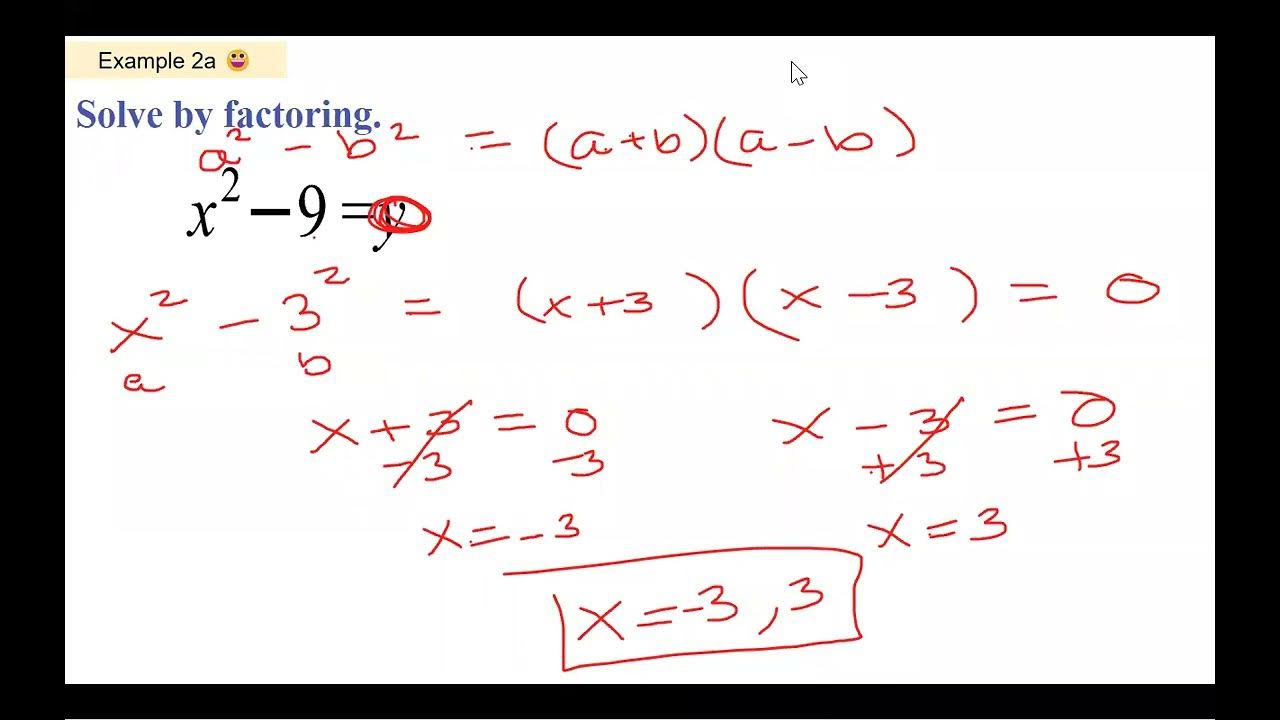 Example 2a 😀
Solve by factoring.
a² - b² = (a+b)(a-b)
x² - 9 = y
x² - 3² = (x+3)(x-3) = 0
a b
x + 3 = 0 x - 3 = 0
-3 -3 +3 +3
x = -3 x = 3
x = -3, 3